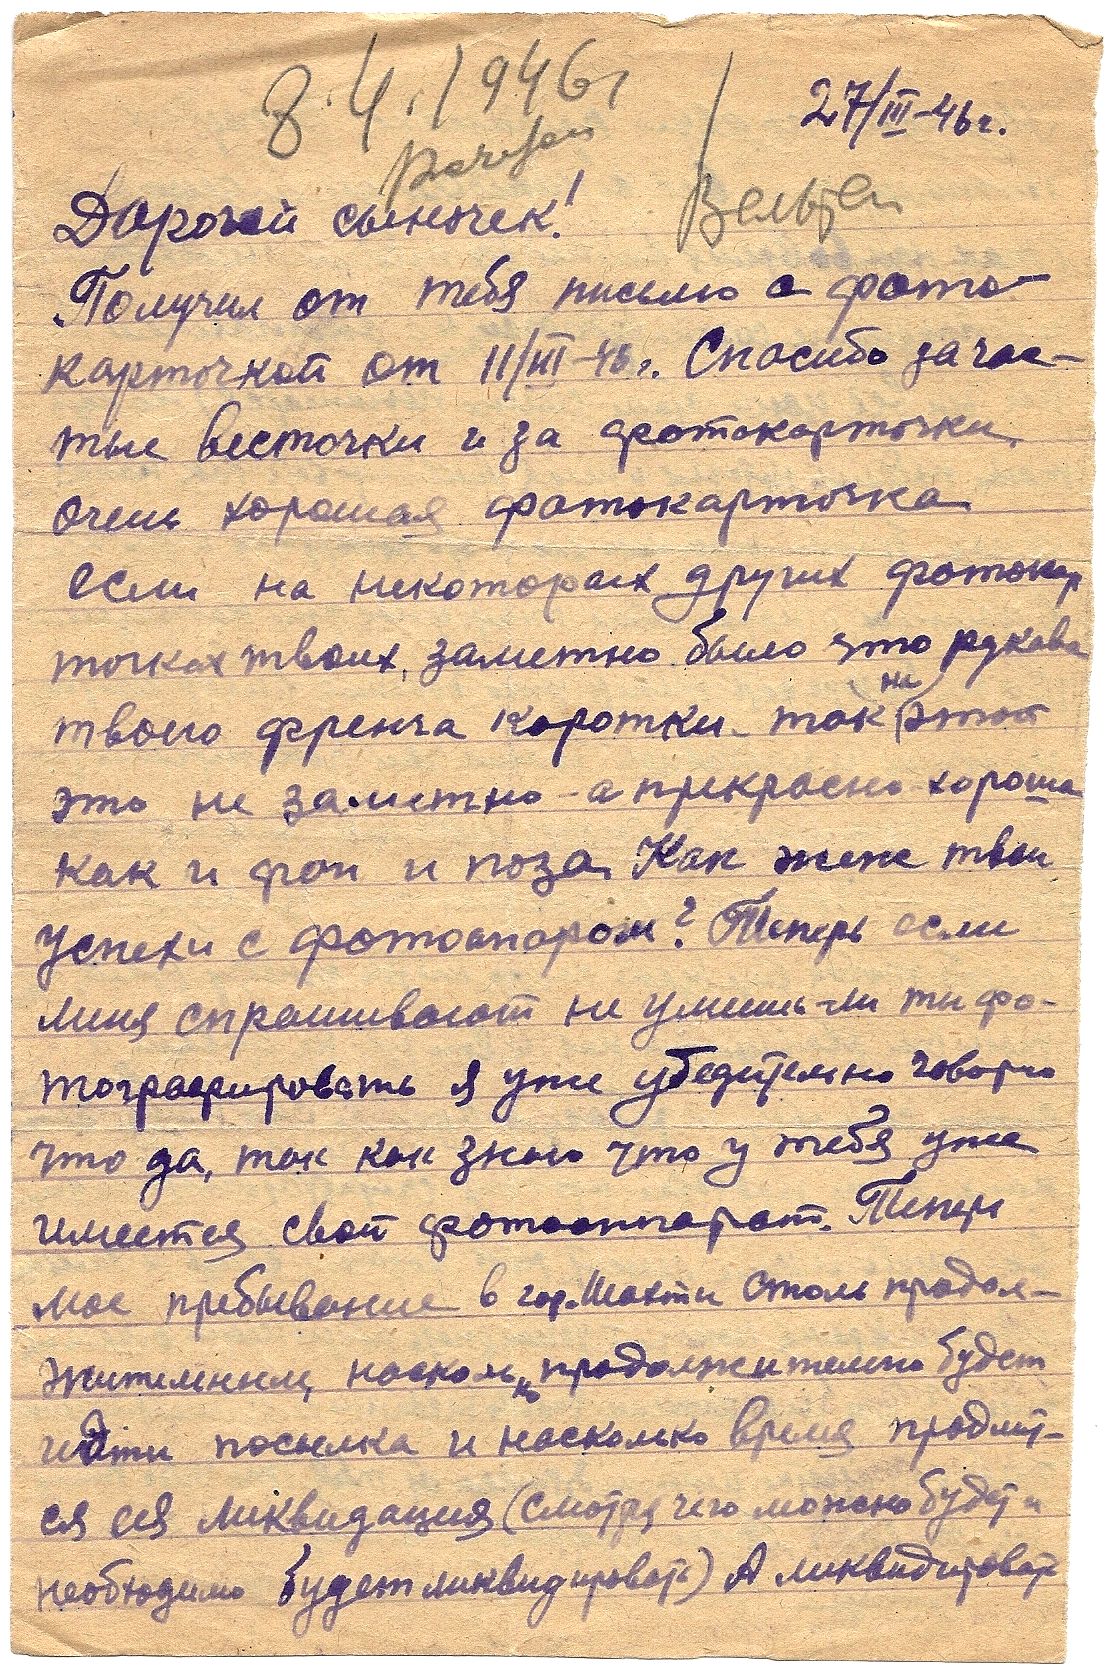 8.4.1946г
27/III-46г.
Дорогой сыночек!
Получил от тебя письмо с фото-
карточкой от 11/III-46г. Спасибо за час-
тые весточки и за фотокарточки,
очень хорошая фотокарточка
если на некоторых других фотокар
точках твоих, заметно было что рукава
твоего френча коротки - так на этой
это не заметно - а прекрасно - хороша
как и фон и поза. Как же твои
успехи с фотоапаром? Теперь если
меня спрашивают не умеешь-ли ты фо-
тографировать я уже убедительно говорю
что да, так как знаю что у тебя уже
имеется свой фотоаппарат. Теперь
мое пребывание в гор. Шахты столь продол-
жительным, насколько продолжительно будет
идти посылка и насколько время продлит-
ся ея ликвидация (смотря чего можно будет и
необходимо будет ликвидировать) А ликвидировать